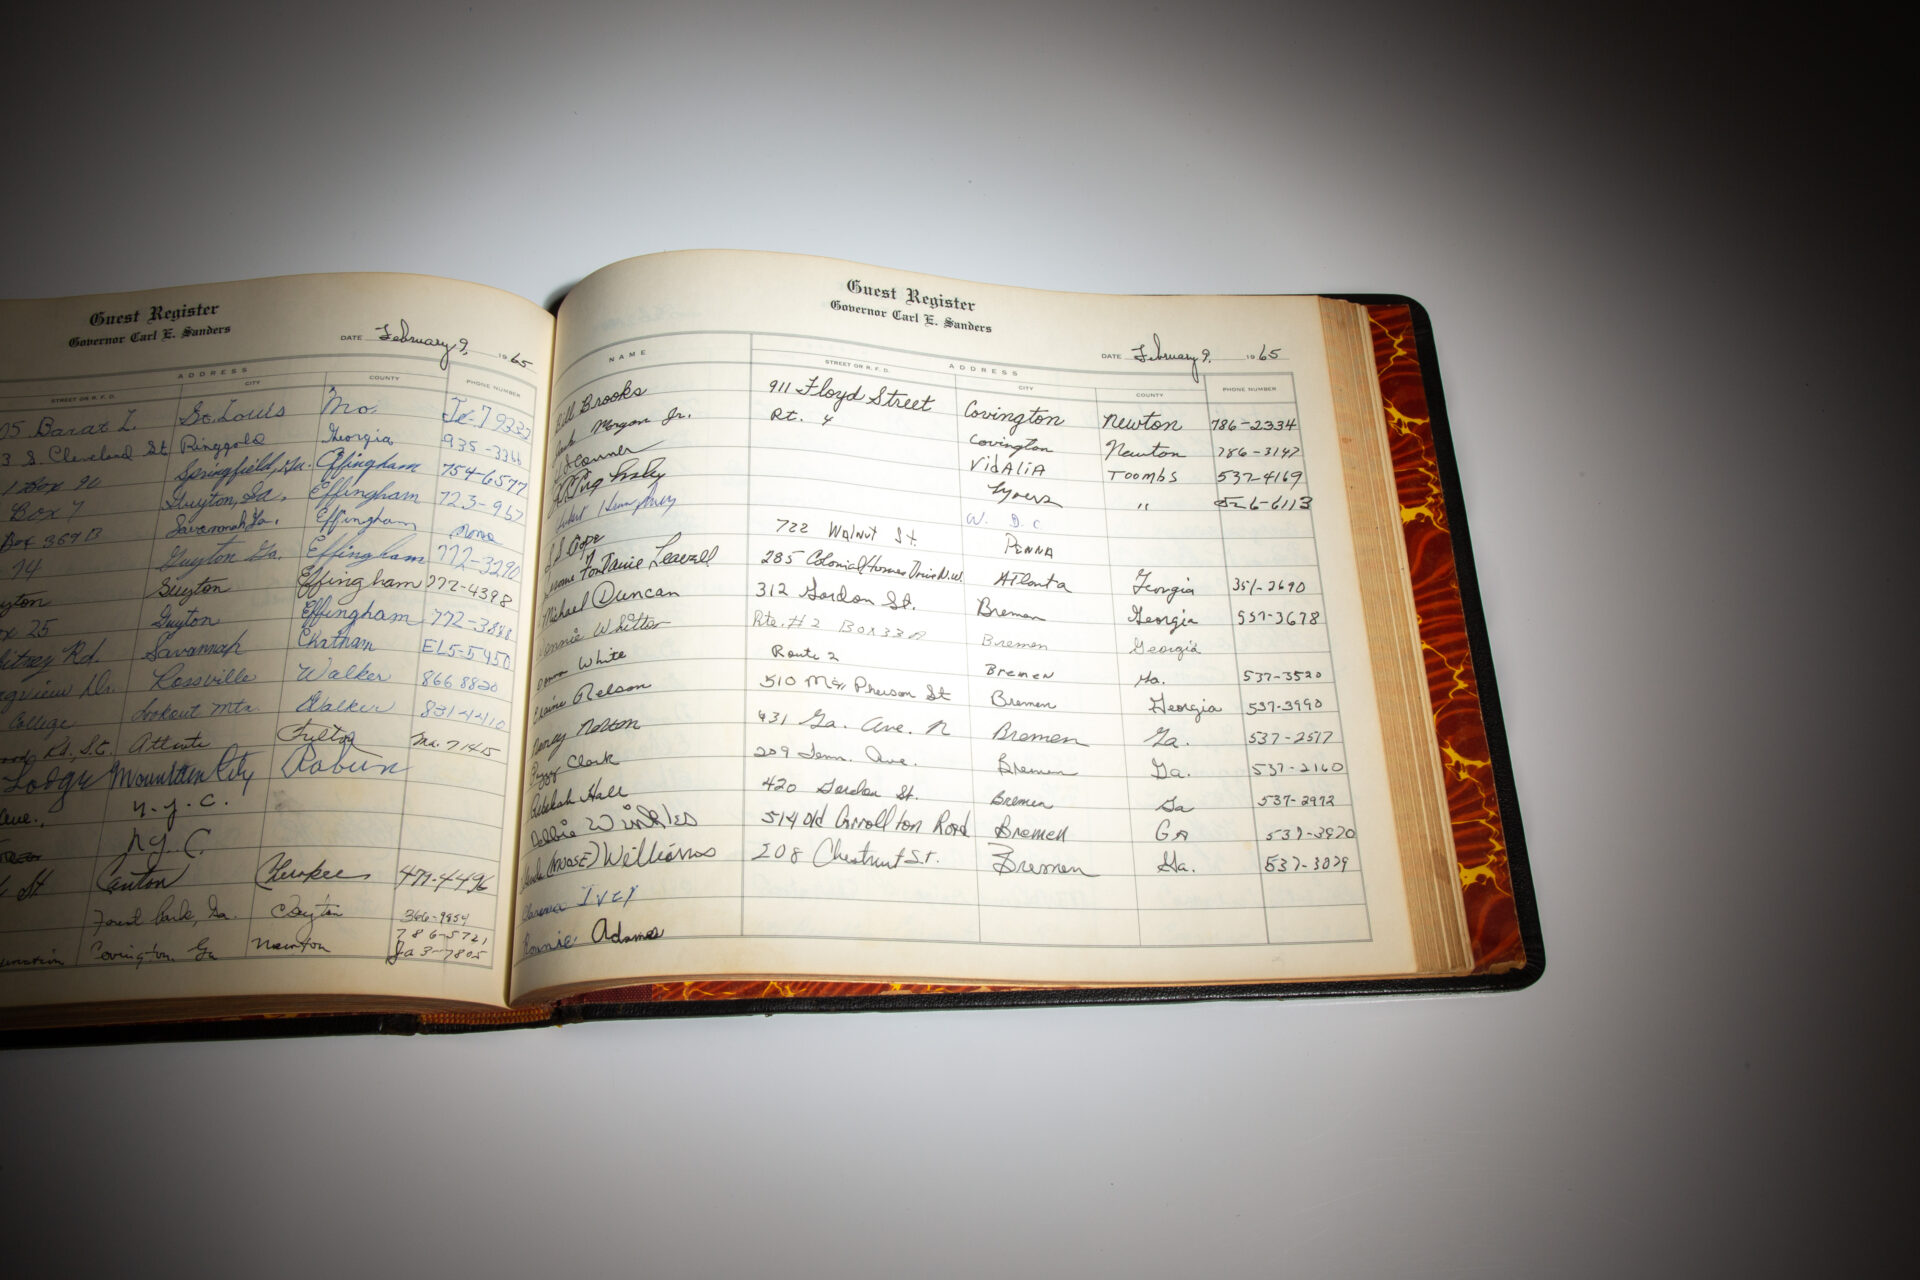 Guest Register
Governor Carl E. Sanders
DATE February 9, 1965
ADDRESS
STREET OR R. F. D. CITY COUNTY PHONE NUMBER
Barat St. Louis Mo.
3 S. Cleveland St Ringgold Georgia 935-3366
Box 90 Springfield, Ga. Effingham 754-6577
Box 7 Guyton, Ga. Effingham 723-967
Box 369 B Savannah Ga. Effingham None
74 Guyton Ga. Effingham 772-3290
Guyton Effingham 772-4398
25 Guyton Effingham 772-3888
Rd. Savannah Chatham EL5-5450
Dr. Rossville Walker 866 8820
College Lookout Mtn. Walker 831-4410
Rd, S.E. Atlanta Fulton
Lodge Mountain City Rabun
Ave., N.Y.C.
N.Y.C.
St Canton Cherokee 479-4496
Forest Park, Ga. Clayton 366-9854
786-5721
Covington Ga Newton Ja 3-7805
Guest Register
Governor Carl E. Sanders
DATE February 9, 1965
NAME ADDRESS
STREET OR R. F. D. CITY COUNTY PHONE NUMBER
Bill Brooks 911 Floyd Street Covington Newton 786-2334
Morgan Jr. Rt. 4 Covington Newton 786-3147
Conner Vidalia Toombs 537-4169
Lyons " 526-6113
W. D.C.
722 Walnut St. Penna
Fontaine Leavell 285 Colonial Homes Drive N.W. Atlanta Georgia 351-2690
Michael Duncan 312 Gordon St. Bremen Georgia 537-3678
Whitton Rte. #2 Box 330 Bremen Georgia
White Route 2 Bremen Ga. 537-3520
Elaine Nelson 510 McPherson St Bremen Georgia 537-3990
Nancy 431 Ga. Ave. N Bremen Ga. 537-2517
Peggy Clark 209 Tenn. Ave. Bremen Ga. 537-2160
Rebekah Hall 420 Gordon St. Bremen Ga 537-2972
Debbie Winkles 514 Old Carrollton Road Bremen GA 537-3970
(Moose) Williams 208 Chestnut St. Bremen Ga. 537-3079
Clarence Ivey
Ronnie Adams